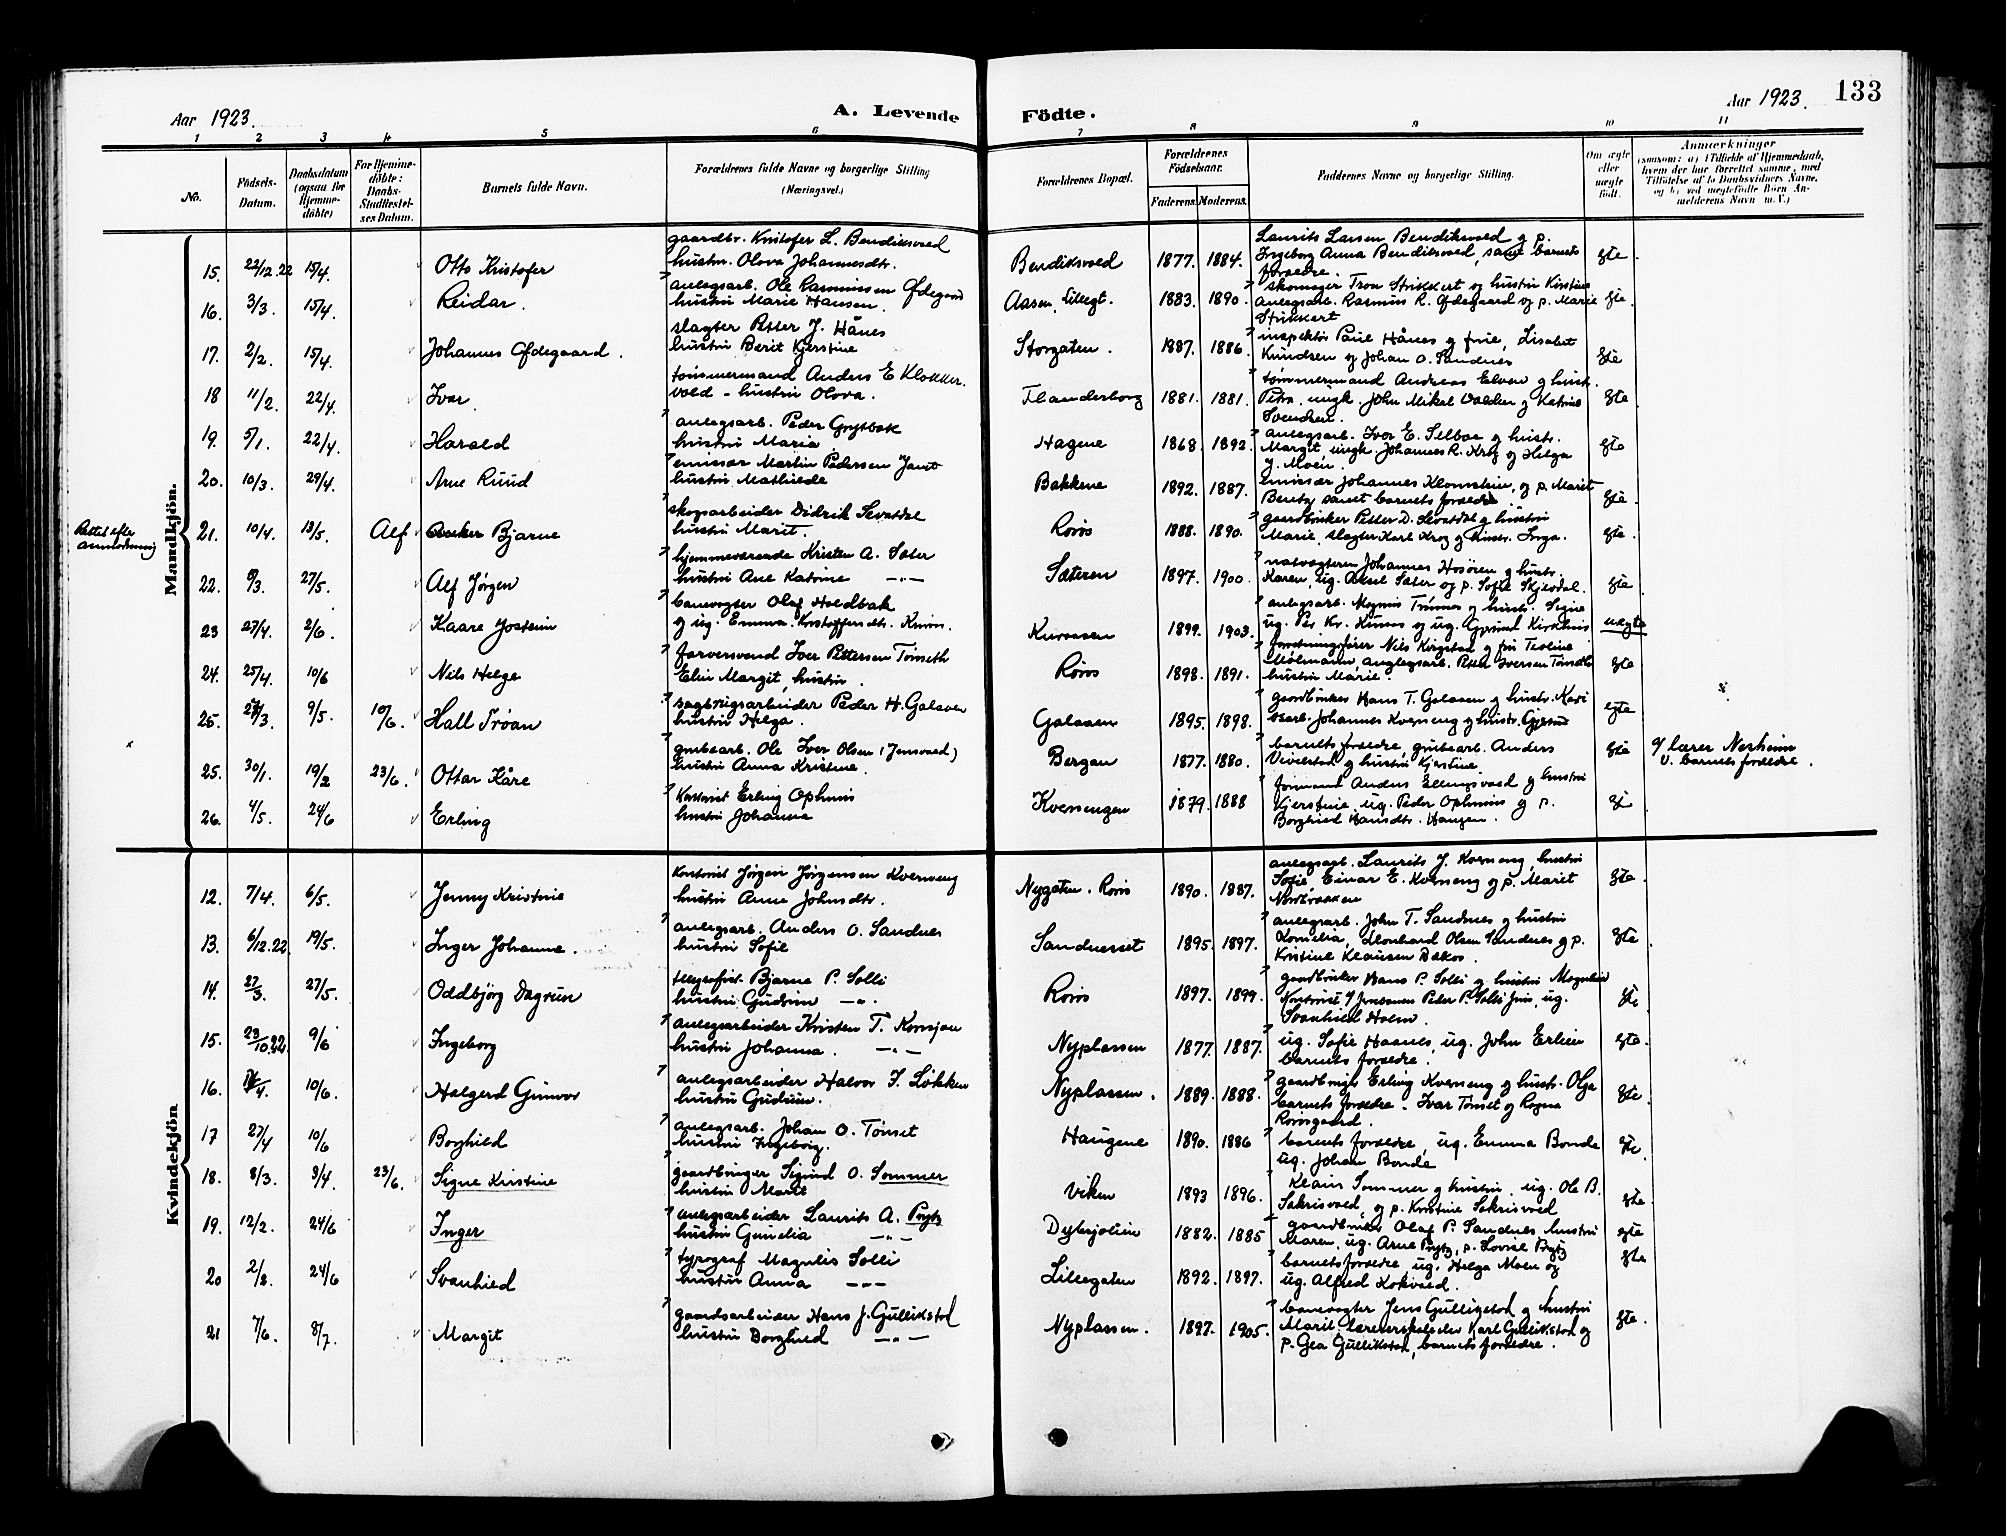 133
Aar 1923. A. Levende Födte. Aar 1923.
1 2 3 4 5 6 7 8 9 10 11
No. Födsels-Datum. Daabsdatum (ogsaa for Hjemmedöbte) For Hjemmedöbte: Daabs-Stadfæstelses Datum. Barnets fulde Navn. Forældrenes fulde Navne og borgerlige Stilling (Næringsvei.) Forældrenes Bopæl. Forældrenes Födselsaar. Faderens. Moderens. Faddernes Navne og borgerlige Stilling. Om ægte eller uægte födt. Anmærkninger
Mandkjön.
15. 22/12.22 15/4. Otto Kristofer gaardbr. Kristofer L. Bendiksvold hustru Olova Johannesdtr. Bendiksvold 1877. 1884. Laurits Larsen Bendiksvold og p. Ingeborg Anna Bendiksvold, samt barnets foreldre. egte.
16. 3/3. 15/4. Reidar. anlegsarb. Ole Rasmussen Ødegaard hustru Marie Hansen. Aasen, Lillegt. 1883. 1890. skomager Tron Strikkert og hustru Kirstine anlegsarb. Rasmus R. Ødegaard og p. Marie Strikkert egte.
17. 2/2. 15/4. Johannes Ødegaard. slagter Petter J. Hånes hustru Berit Kjerstine Storgaten. 1887. 1886. inspektør Paul Hånes og frue, Lisabet Knudsen og Johan O. Sandnes egte
18 11/2. 22/4. Ivar. tømmermand Anders E. Klokkervold - hustru Olova. Flanderborg 1881. 1881. tømmermand Andreas Elven og hustr. Petra, ungk. John Mikal og Katrine Svendsen. egte
19. 5/1. 22/4. Harald anlegsarb. Peder Grytbak hustru Maria Hagene 1868 1892. anlegsarb. Ivor E. Selboe og hustr. Margit, ungk. Johannes R. Krog og Helga J. Moen. egte
20. 10/3. 29/4. Arne Ruud emissær Martin Pedersen hustru Mathilde Bakkene 1892. 1887. emissær Johannes Klomstein, og p. Marit Bentz samt barnets foreldre egte
Rettet efter anmodning
21. 10/4. 13/5. Alf Bjarne skogsarbeider Didrik Sevatdal hustru Marit. Røros 1888. 1890. gaardbruker Petter D. Sevatdal og hustru Marie, slagter Karl Krog og hustr. Inga. egte.
22. 9/3. 27/5. Alf Jørgen hjemmeværende Kristen A. Sæter hustru Ane Katrine -"- Sæteren 1897. 1900. natvagteren Johannes Hosøien og hustr. Karen, ug. Aksel Sæter og p. Sofie Skjevdal. egte
23 27/4. 2/6. Kaare Jostein banevagter Olaf Holdbak og ug. Emma Kristoffersdtr. Kuraas. Kuraasen 1899. 1903. anlegsarb. Magnus Trønnes og hustr. Signe ug. Per Kr. Kuraas og ug. Gjertrud Kirkhus uegte
24. 25/4. 10/6 Nils Helge farversvend Iver Pettersen Tamneth Elin Margit, hustru. Røros 1898. 1891. forretningsfører Nils Kirgstad og fru Teoline Mølmann, anlegsarb. Petter Iversen hustru Marie. egte
25. 24/3. 9/5. 10/6. Hall Trøan sagbrugsarbeider Peder H. Galaaen hustru Helga. Galaaen 1895. 1898. gaardbruker Hans T. Galaaen og hustr. Kari Johannes Kverneng og hustr. Gjertrud egte
25. 30/1. 19/2 23/6. Ottar Kåre grubearb. Ole Iver Olsen (Jensvold) hustru Anna Kristine. Bergan 1877. 1880. barnets foreldre, grubearb. Anders Vivelstad og hustru Kjerstine egte v/ lærer Nesheim v. barnets foreldre.
26. 4/5. 24/6 Erling Kontorist Erling Ophuus hustru Johanna Kvernengen 1879. 1888 formand Anders Ellingsvold og hustru Kjerstine, ug. Peder Ophuus og p. Borghild Hansdtr. Haugen. e
Kvindekjön
12. 7/4. 6/5. Jenny Kristine kontorist Jørgen Jørgensen Kverneng hustru Anna Johnsdtr. Nygaten. Røros 1890. 1887. anlegsarb. Laurits J. Kverneng, hustru Sofie, Einar E. Kverneng og p. Marit Nordbrekken egte.
13. 6/12.22 19/5. Inger Johanne. anlegsarb. Anders O. Sandnes hustru Sofie Sandnesset 1895. 1897. anlegsarb. John T. Sandnes og hustru Kornelia, Leonhard Olsen Sandnes og p. Kristine Klausen Bakos. egte
14. 27/3. 27/5. Oddbjörg Dagrun telegrafist Bjarne P. Solli hustru Gudrun -"- Røros 1897. 1899. gaardbruker Hans P. Solli og hustru Magnhild Kontorist Peder P. Solli jun, ug. Svanhild Holm. egte
15. 23/10.22. 9/6 Ingeborg anlegsarbeider Kristen T. Korsjøen hustru Johanna. -"- Nyplassen 1877. 1887. ug. Sofie Haanes, ug. John Erlien barnets foreldre. egte.
16. /4. 10/6. Halgerd Gunvor anlegsarbeider Halvor J. Løkken hustru Gudrun. Nyplassen. 1889. 1888. gaardbruger Erling Kverneng og hustr. Olga barnets foreldre. Ivar Tønset og Ragna Rørosgaard. egte
17 27/4 10/6 Borghild anlegsarb. Johan O. Tønset hustru Ingeborg. Haugene 1890. 1886 barnets foreldre, ug. Emma Bonde ug. Johan Bonde egte.
18. 8/3. 3/4. 23/6. Signe Kristine gaardbruger Sigurd O. Sommer hustru Marit Viken 1893 1896. Klaus Sommer og hustru. ug. Ole B. Sakrisvold, og p. Kristine Sakrisvold egte
19. 12/2. 24/6 Inger anlegsarbeider Laurits A. Prytz hustru Gunelia -"- 1882. 1885 gaardbruker Olaf P. Sandnes hustru Maren, ug. Arne Prytz, p. Lovise Prytz egte
20 2/8. 24/6 Svanhild typograf Magnus Solli hustru Anna -"- Lillegaten 1892. 1897. barnets foreldre, ug. Helga Moen og ug. Alfred Kokvold. egte
21 7/6. 8/7. Margit gaardsarbeider Hans J. Gullikstad hustru Borghild -"- Nyplassen. 1897. 1905. banevogter Jens Gullikstad og hustru Marit, lærerskoleelev Karl Gullikstad og p. Gea Gullikstad, barnets foreldre. egte.